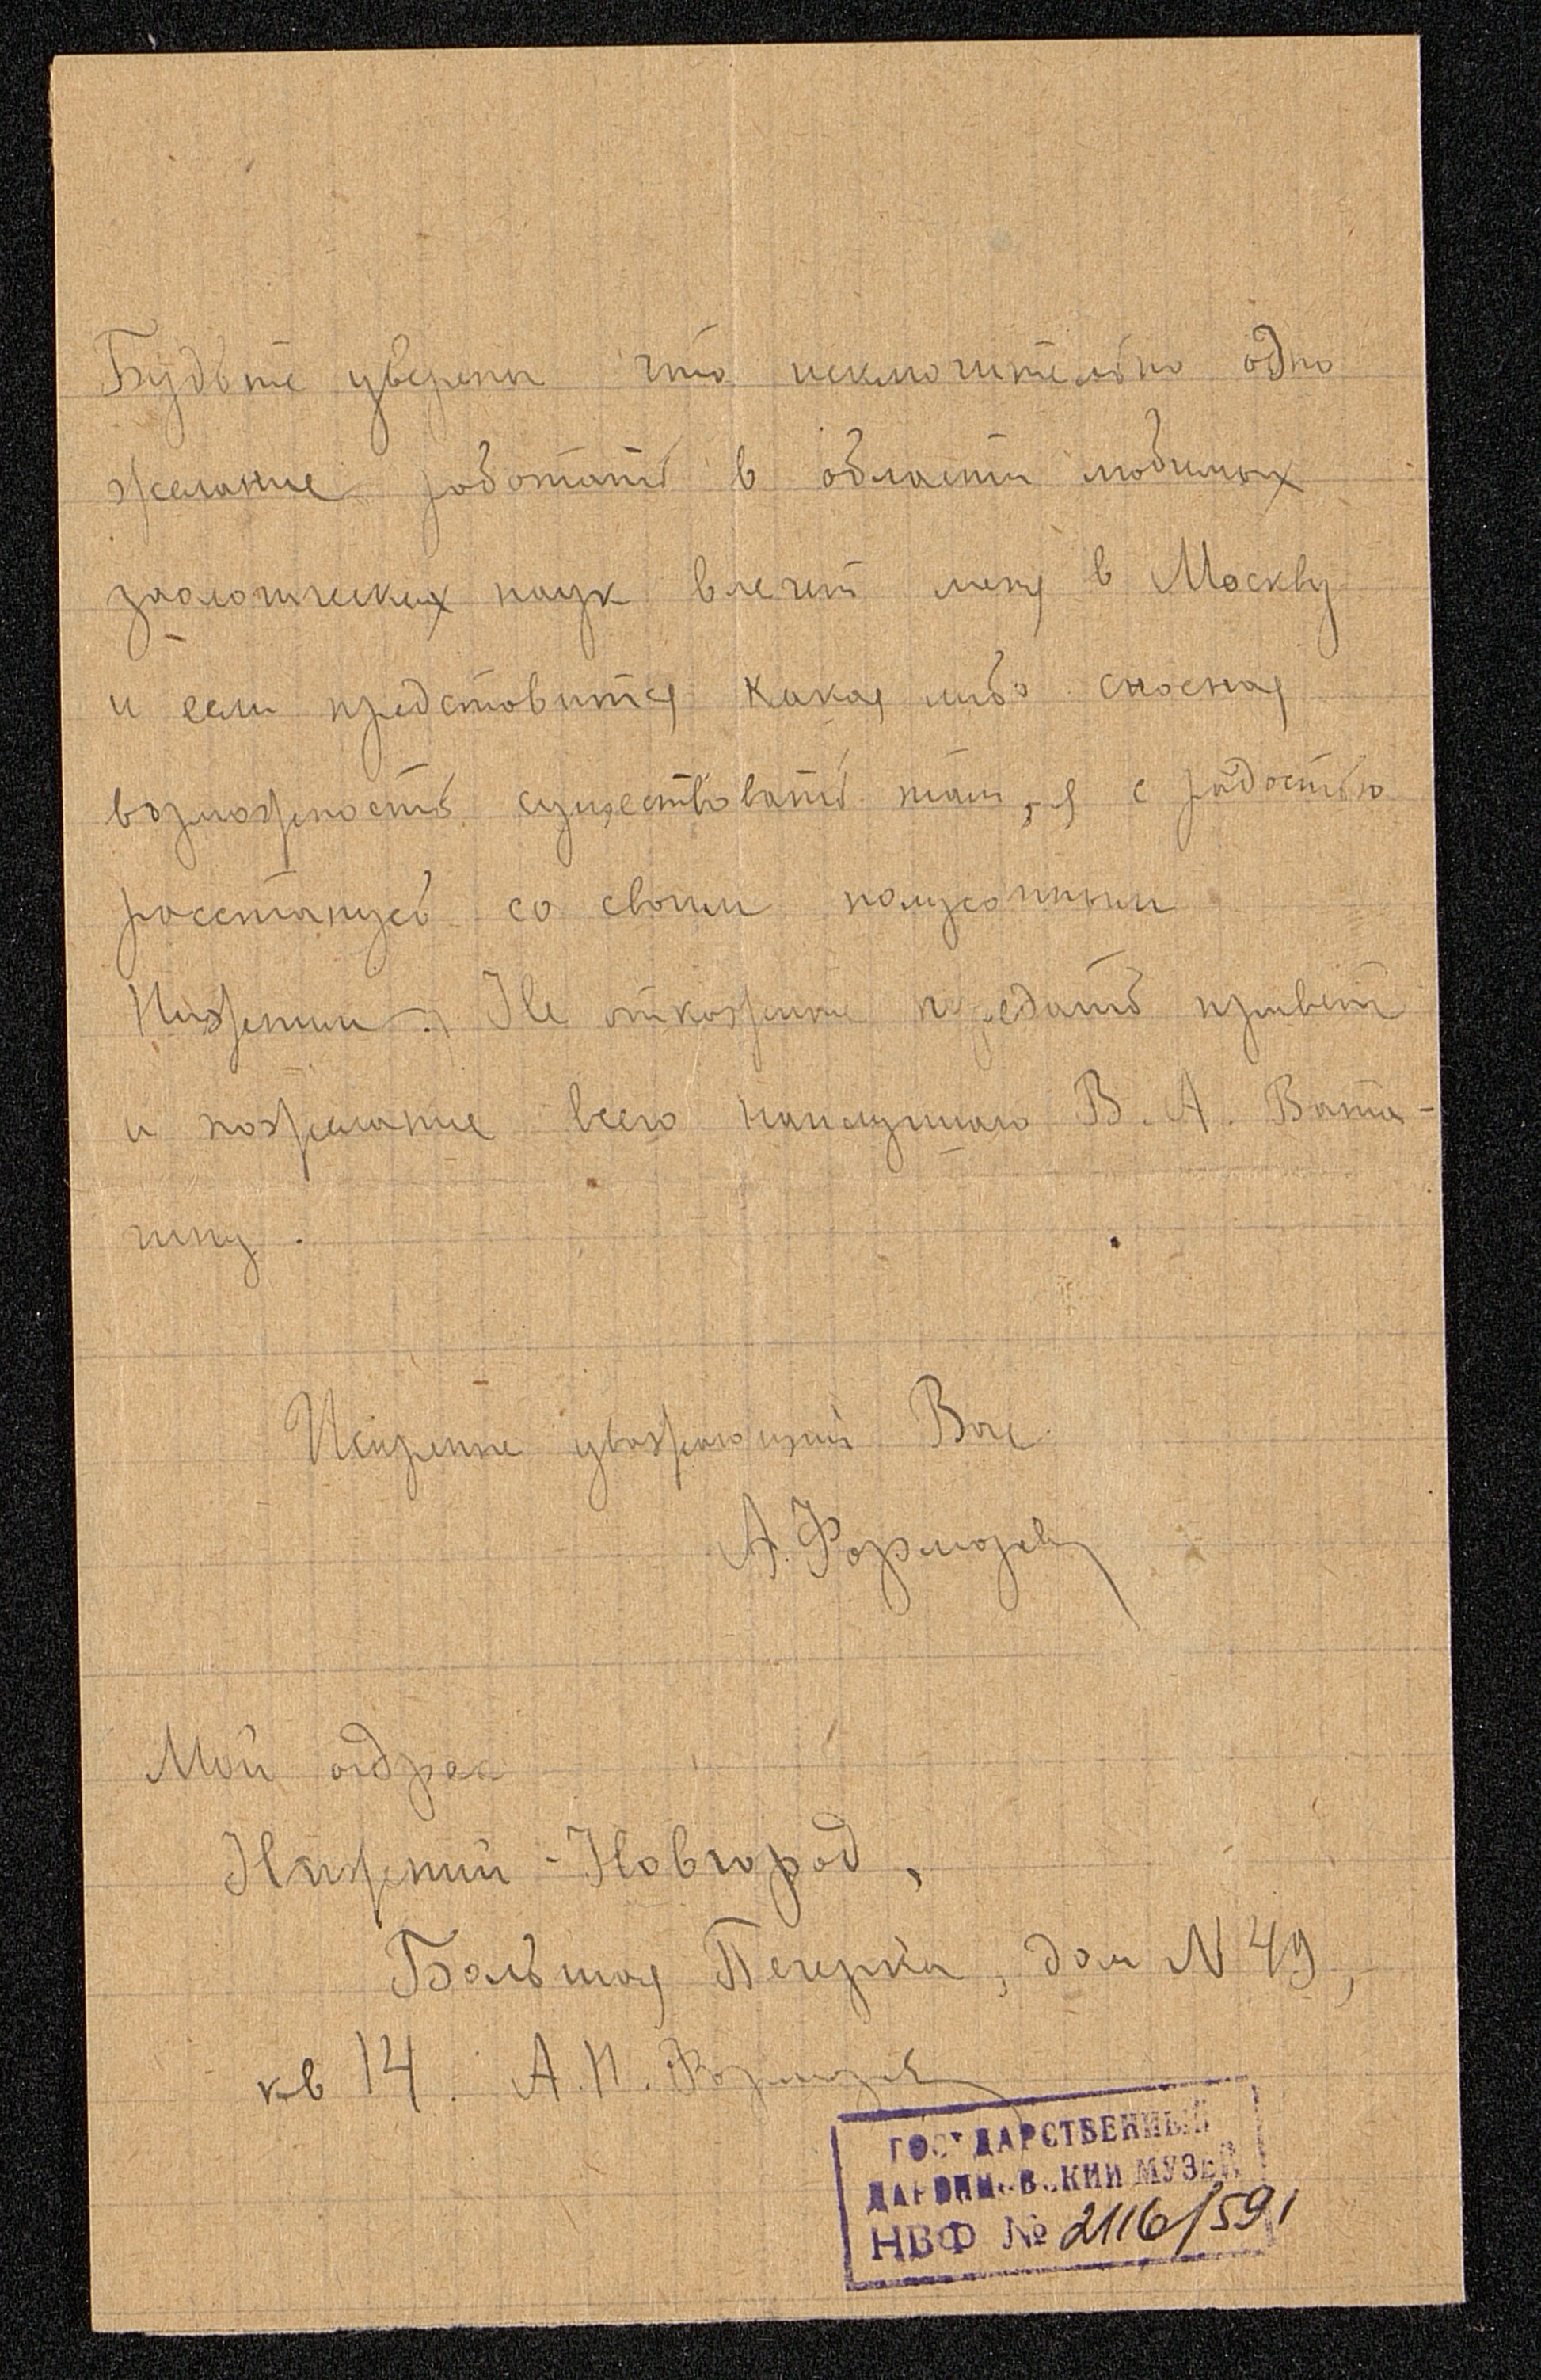 Будьте уверены что исключительно одно
желание работать в области любимых
зоологических наук влечет меня в Москву
и если представится какая либо сносная
возможность существовать там, я с радостью
расстанусь со своим полусонным
Нижним. Не откажите передать привет
и пожелание всего наилучшаго В. А. Вата-
гину.
Искренне уважающий Вас
А. Формозов
Мой адрес
Нижний-Новгород,
Большая Печерка, дом N 49,
кв 14. А. Н. Формозов
ГОСУДАРСТВЕННЫЙ
ДАРВИНОВСКИЙ МУЗЕЙ
НВФ № 2116/591